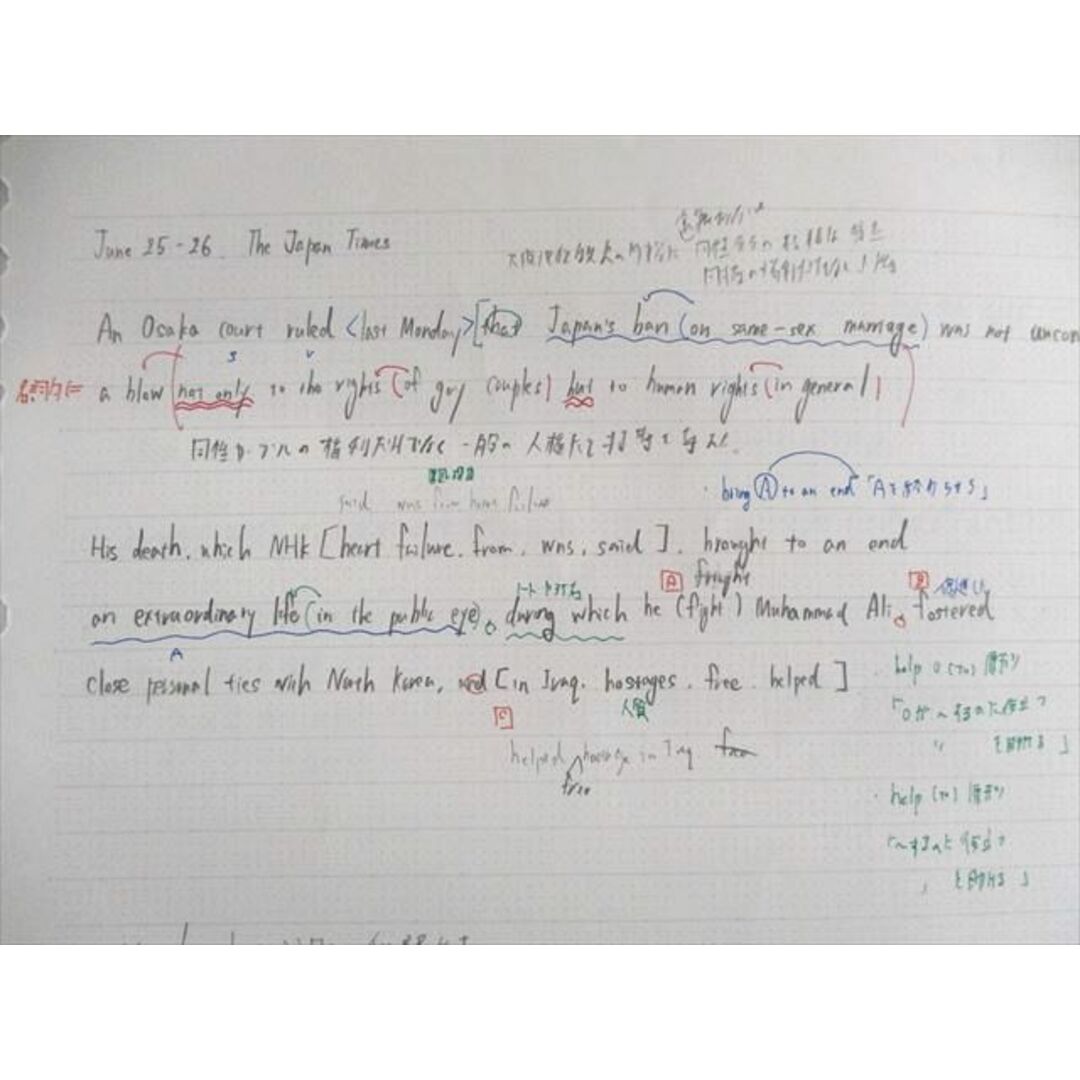 June 25-26. The Japan Times
An Osaka court ruled <last Monday> [that Japan's ban (on same-sex marriage) was not uncon
S V
a blow (not only to the rights (of gay couples) but to human rights (in general)
同性カップルの権利だけでなく一般の人権に
said was from heart failure
・bring Ⓐ to an end 「Aを終わらせる」
His death, which NHK [heart failure. from. was. said], brought to an end
fought
A B
an extraordinary life (in the public eye), during which he (fight) Muhammad Ali, fostered
A
close personal ties with North Korea, and [in Iraq. hostages. free. helped]
C 人質
helped free hostage in Iraq free
・help O (to) 原形
「Oが〜するのに役立つ
〃 を助ける」
・help (to) 原形
「〜するのに役立つ
〃 を助ける」